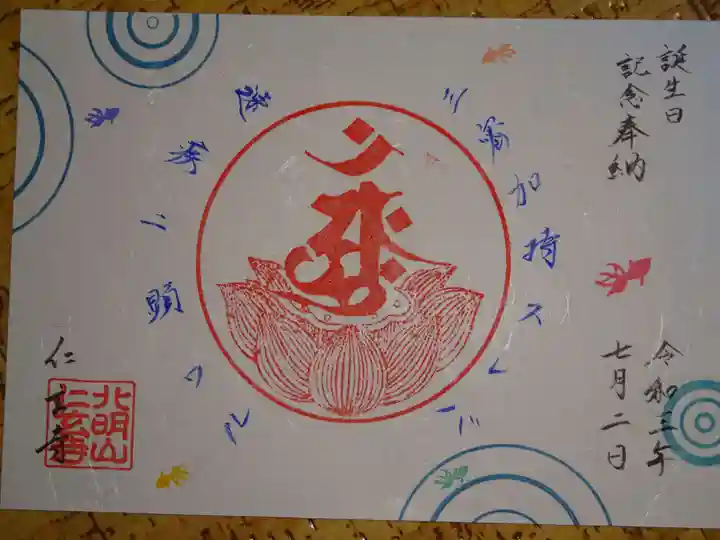 誕生日
記念奉納
三密加持スレバ
速疾ニ顕ワル
令和三年
七月二日
仁玄寺
北明山
仁玄寺